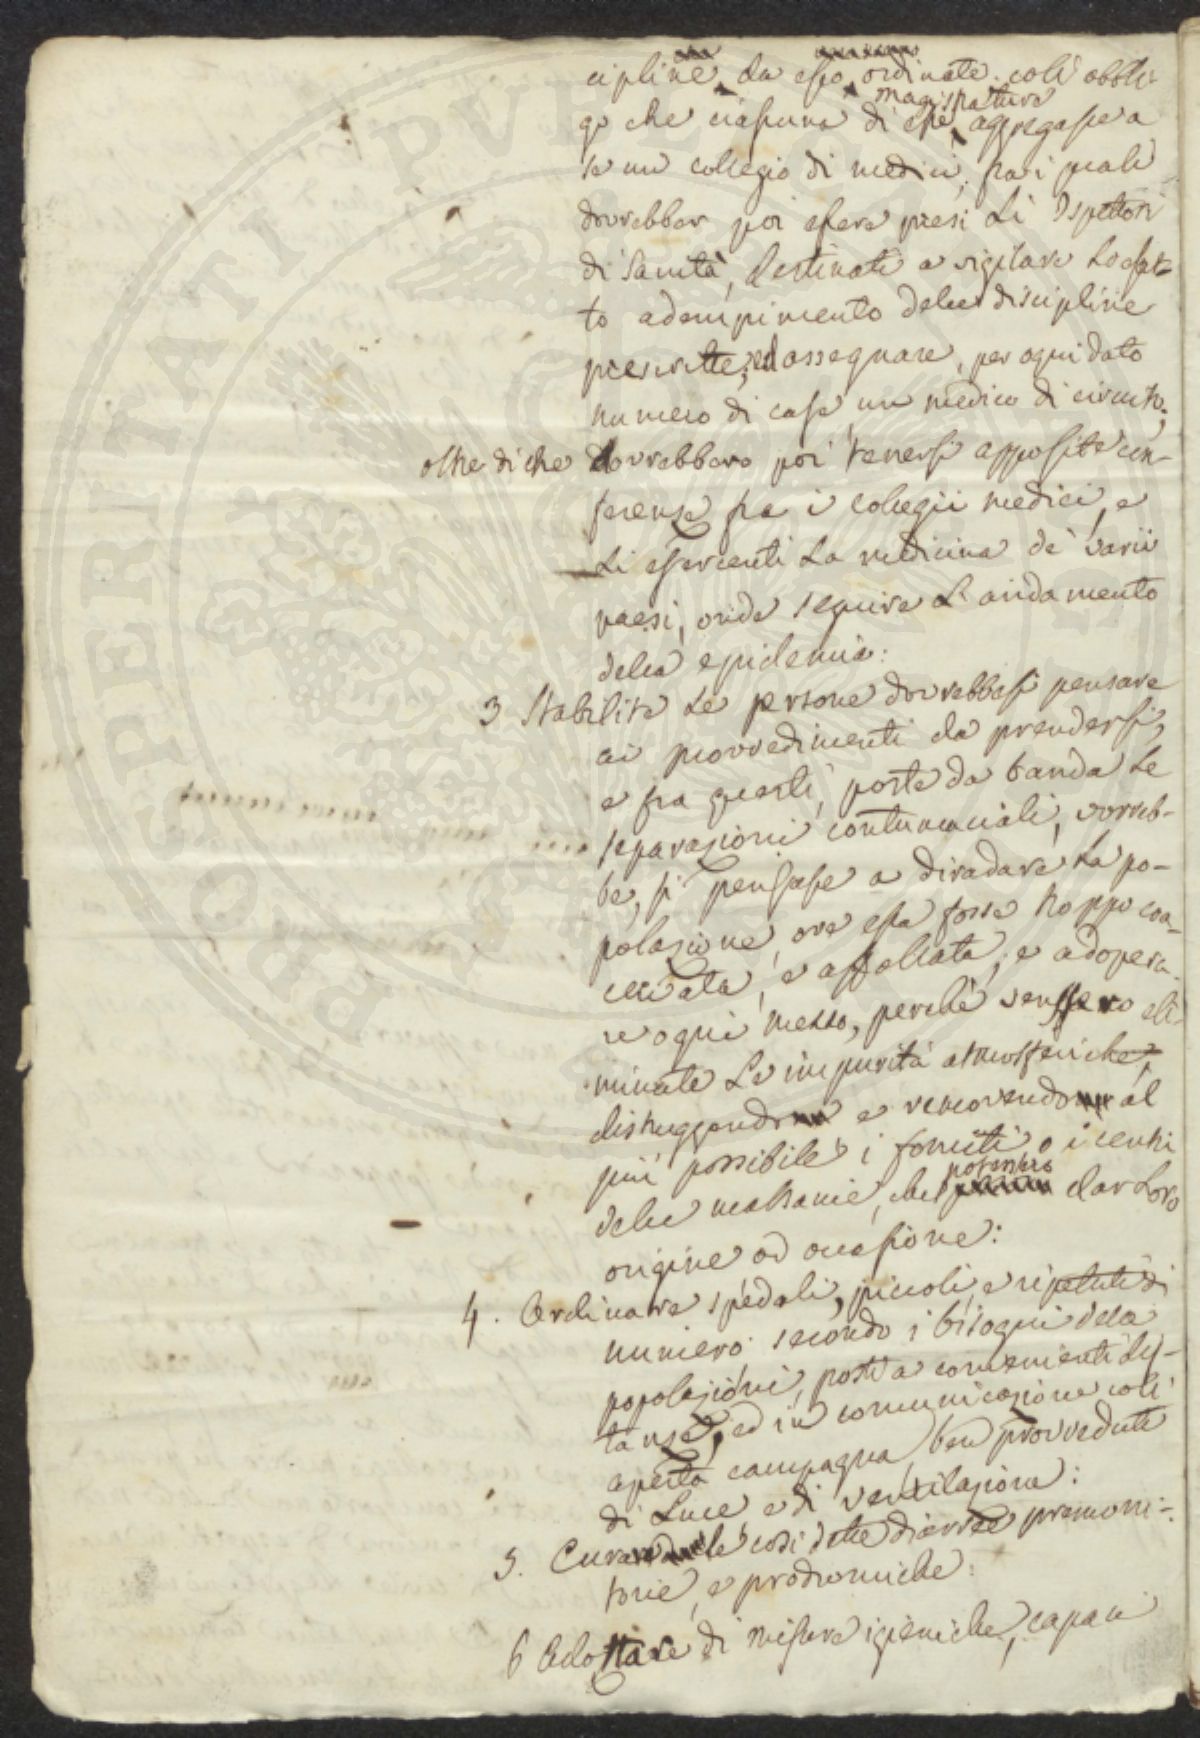 cipline, da esso ordinate, coll' obbli-
go che ciascuna di esse magistrature aggregasse a
se un collegio di medici, fra i quali
dovrebber poi essere presi li Ispettori
di Sanità, destinati a vigilare lo esat-
to adempimento delle discipline
prescritte; ed assegnare, per ogni dato
numero di case, un medico di circuito;
oltre di che dovrebbero poi tenersi apposite con-
ferenze fra i collegii medici, e
li esercenti la medicina de' varii
paesi, onde seguire l'andamento
della epidemia:
3 Stabilite le persone dovrebbesi pensare
ai provvedimenti da prendersi,
e fra questi, poste da banda le
separazioni contumaciali, vorreb-
be, si pensasse a diradare la po-
polazione, ove essa fosse troppo coa-
cervata, e affollata, e adopera-
re ogni mezzo, perchè venissero eli-
minate le impurità atmosferiche,
distruggendo e rimovendo al
più possibile i fomiti o i centri
delle malsanie, che potessero dar loro
origine od occasione:
4. Ordinare spedali, piccoli, e ripetuti di
numero secondo i bisogni della
popolazioni, posti a convenienti dis-
tanze, ed in comunicazione coll'
aperta campagna, ben provveduti
di luce e di ventilazione:
5. Curare le così dette diarree premoni-
torie, e prodromiche:
6 Adottare di misure igieniche, capaci